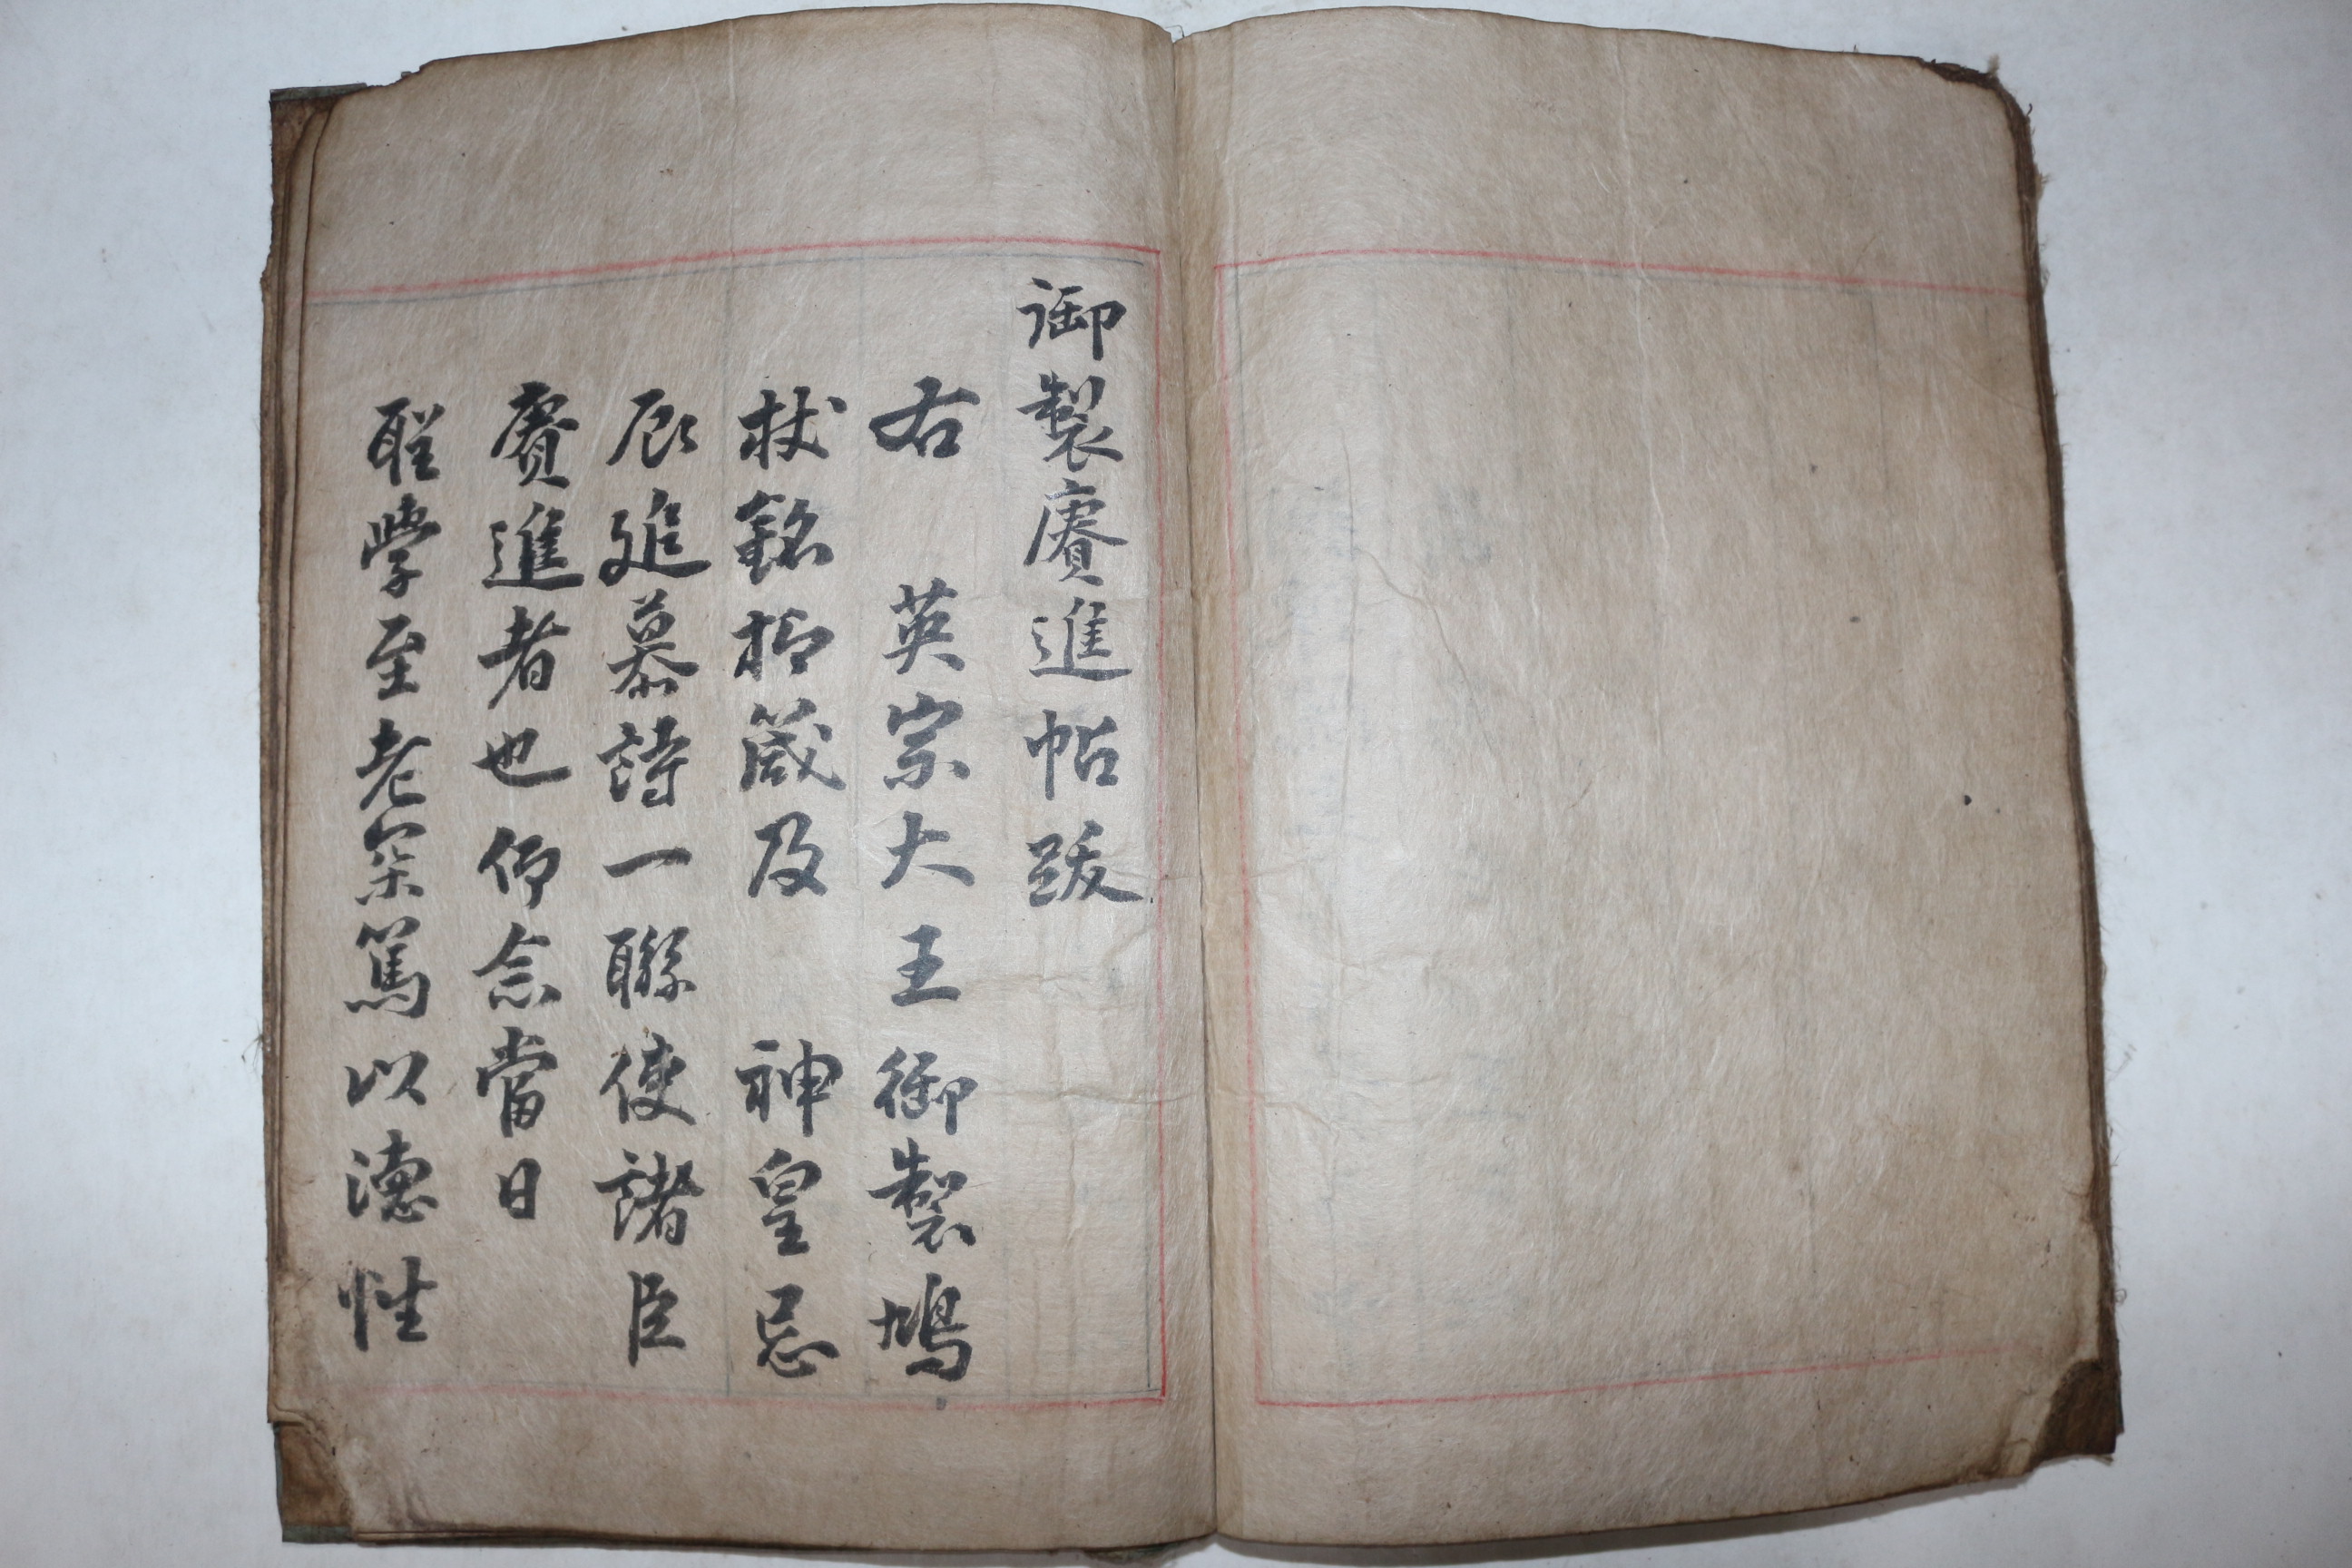 御製賡進帖跋
右 英宗大王御製鳩
杖銘抑箴及 神皇忌
辰追慕詩一聯使諸臣
賡進者也仰念當日
聖學至老冞篤以德性